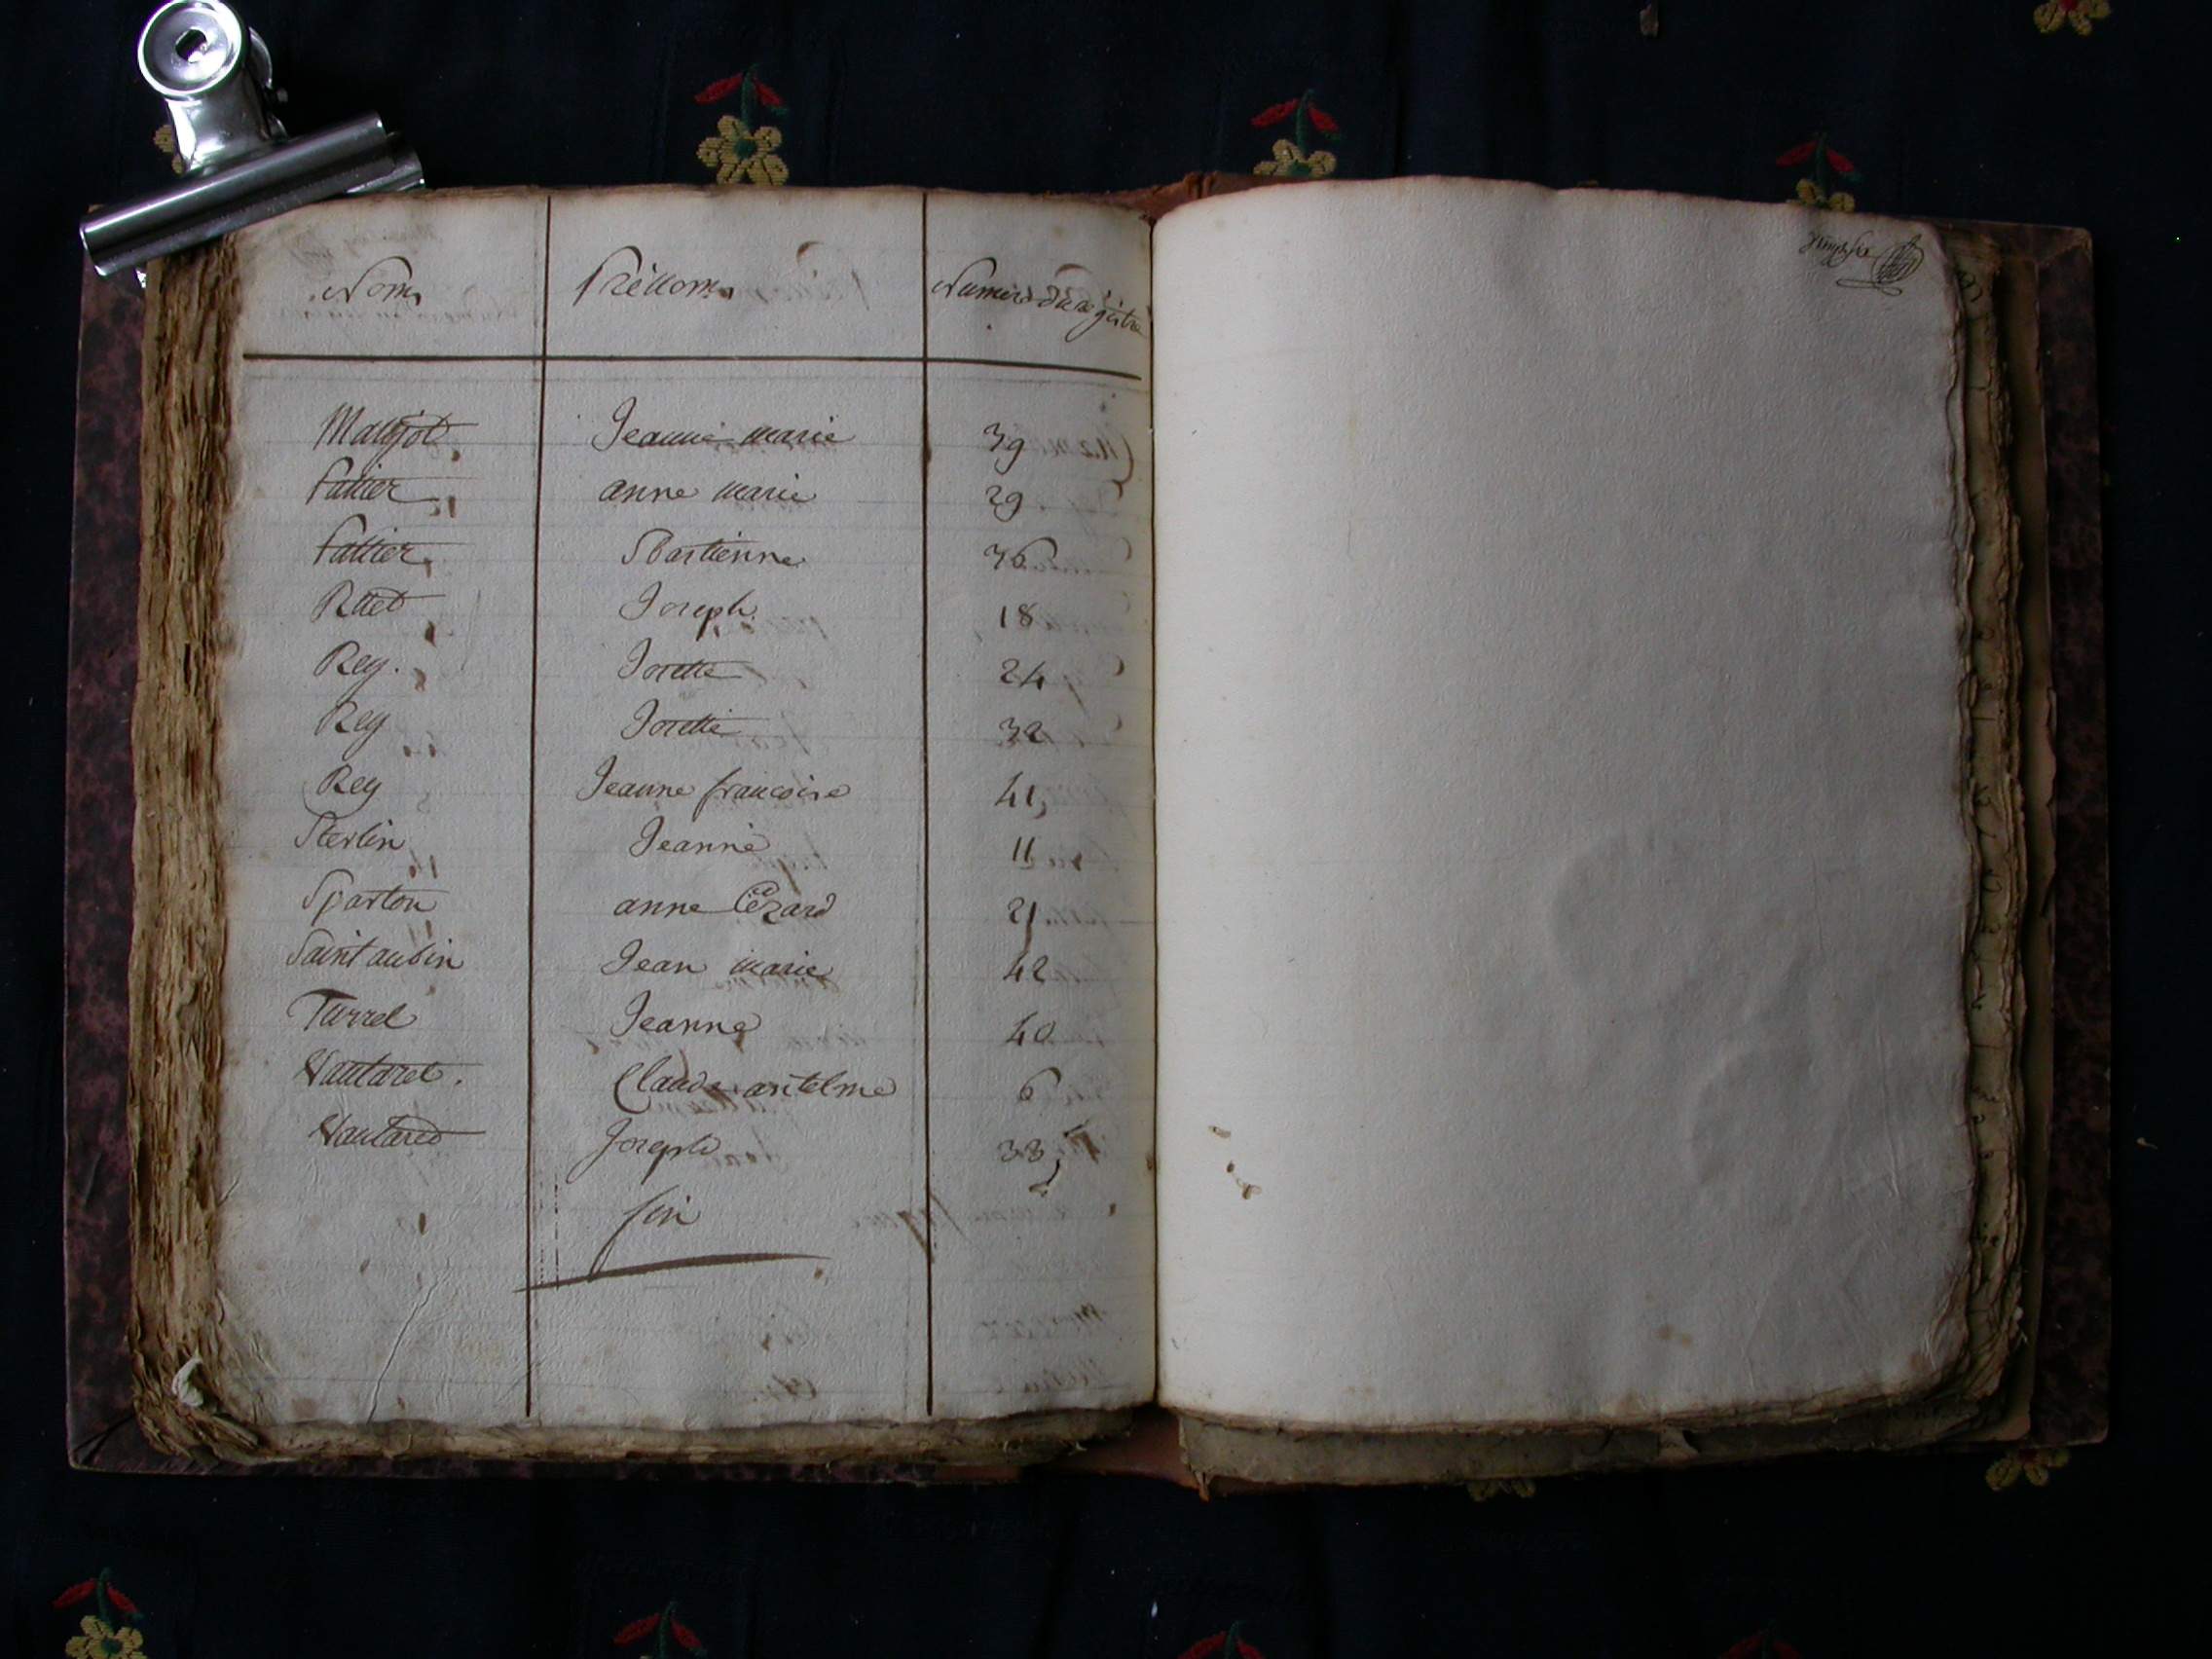 Noms Prénoms Numero du registre
Jeanne marie 39
anne marie 29
36
Joseph 18
Rey. Josette 24
Rey Josette 32
Rey Jeanne francoise 41
Sterlin Jeanne 11
Sparton anne Cezard 21
Saint aubin Jean marie 42
Turrel Jeanne 40
Vautaret. Claude antelme 6
Vautared Joseph 33
fin